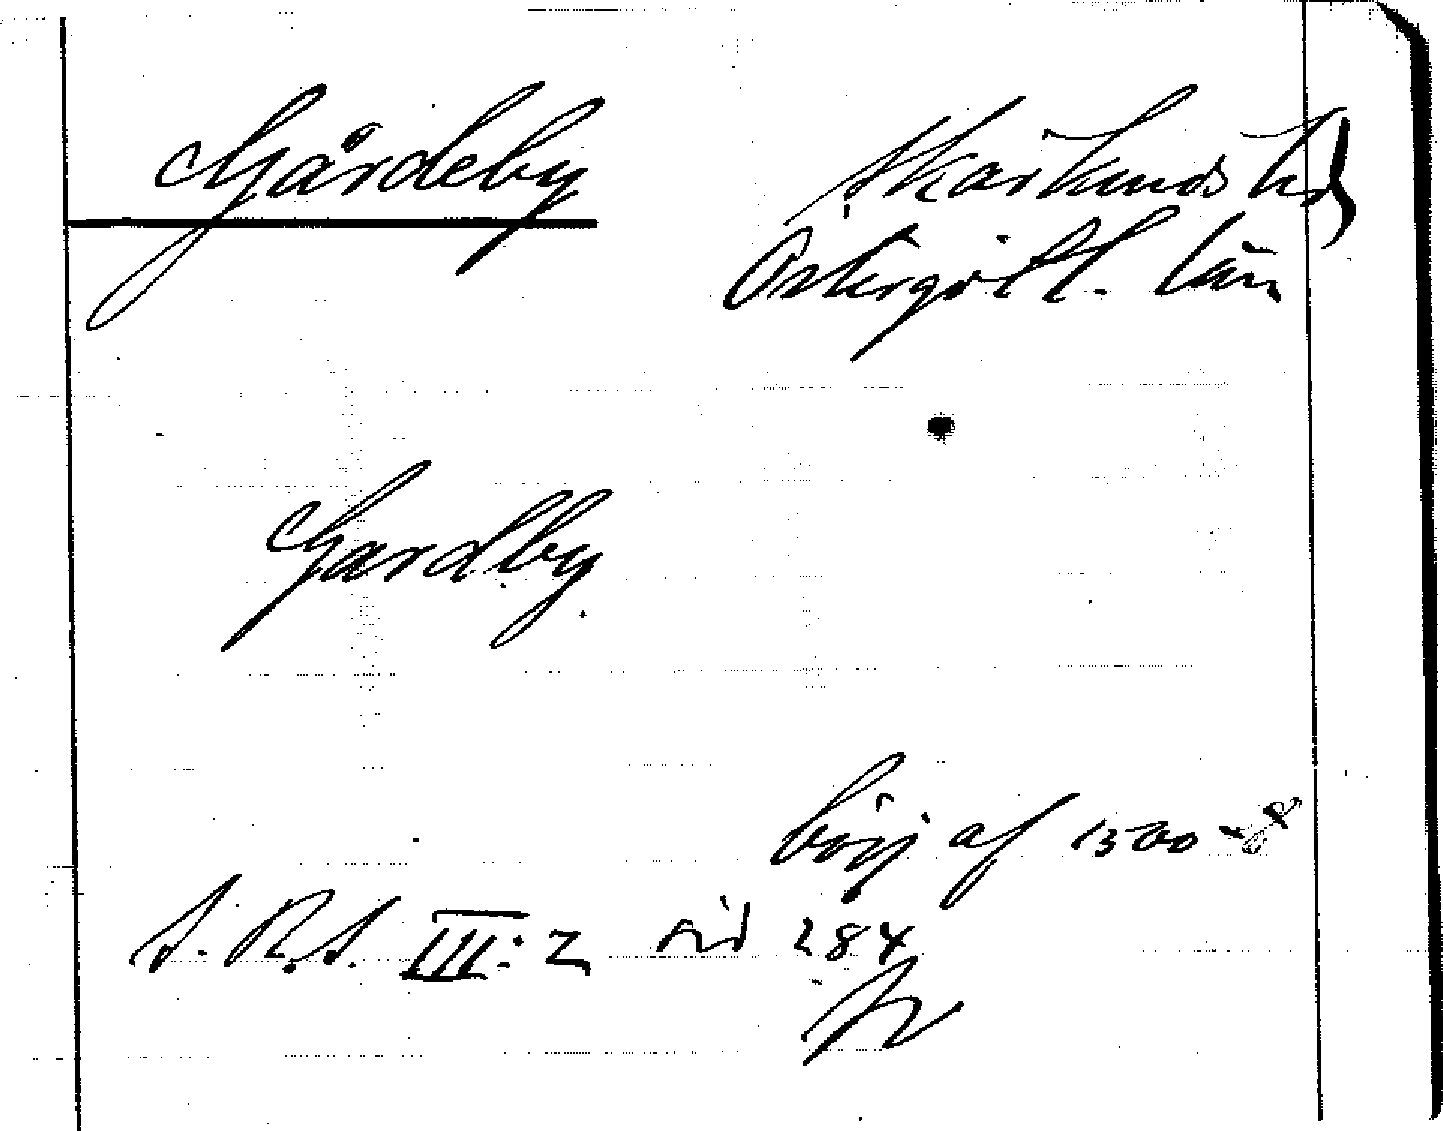 Gårdeby Skärkinds hd
Östergötl. län
Gardby
börj af 1500-t
S. R. S. III: 2 sid 284